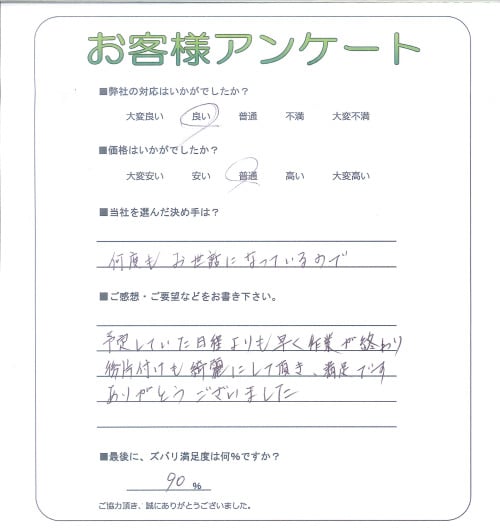 お客様アンケート
■弊社の対応はいかがでしたか？
大変良い 良い 普通 不満 大変不満
■価格はいかがでしたか？
大変安い 安い 普通 高い 大変高い
■当社を選んだ決め手は？
何度も お世話になっているので
■ご感想・ご要望などをお書き下さい。
予定していた日程よりも早く作業が終わり
後片付けも綺麗にして頂き、満足です
ありがとうございました
■最後に、ズバリ満足度は何%ですか？
90 %
ご協力頂き、誠にありがとうございました。